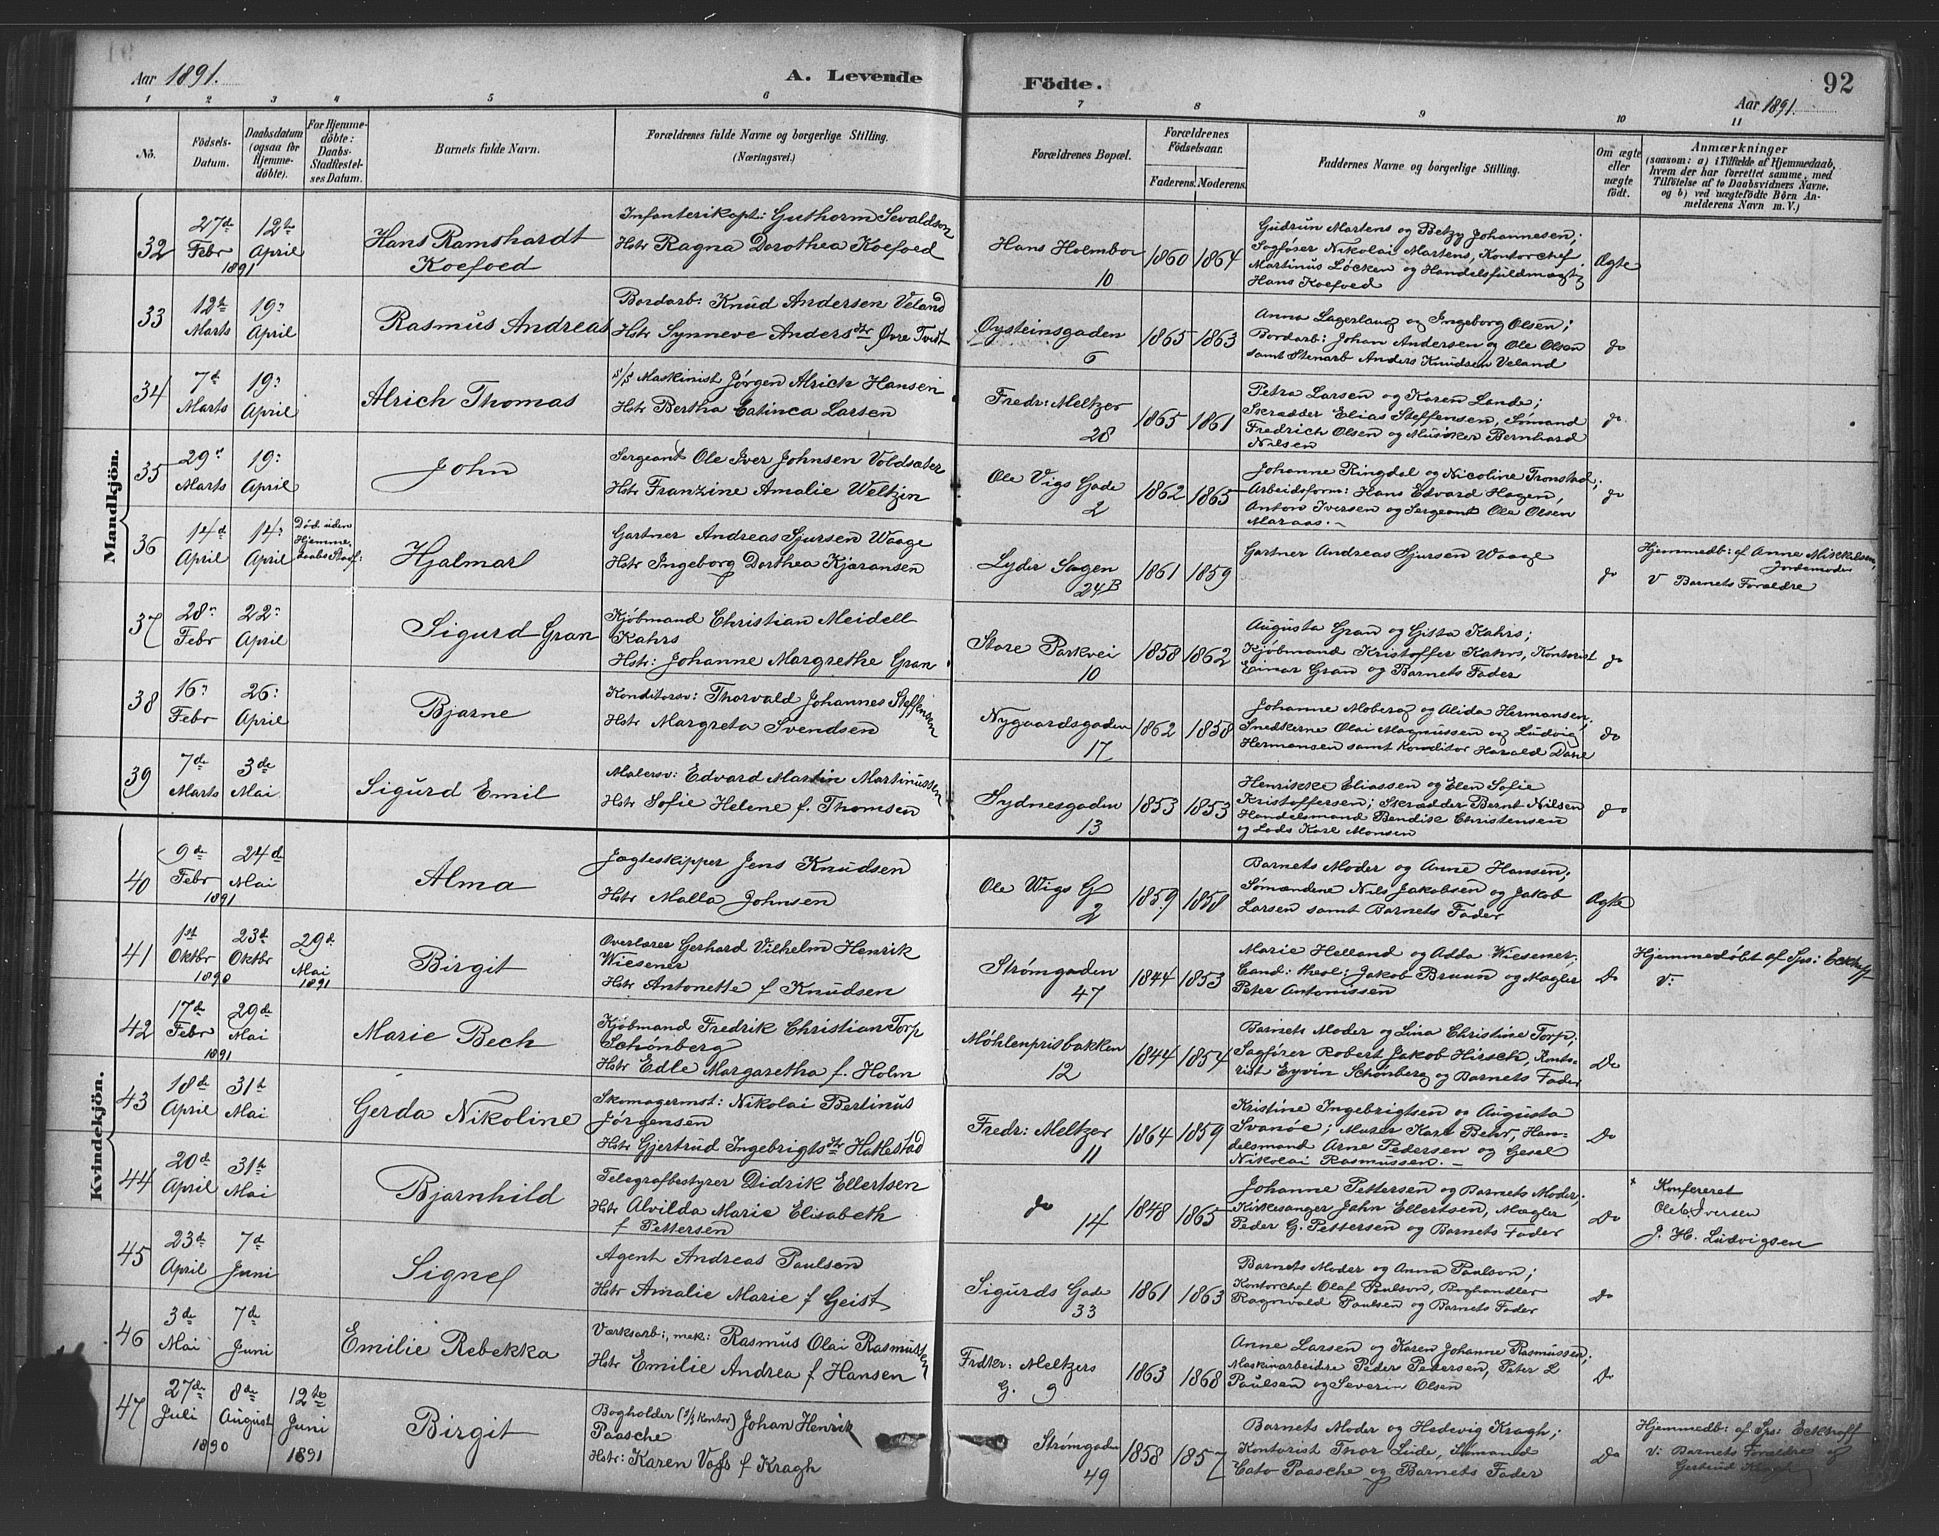 Aar 1891.
A. Levende
Födte.
92
Aar 1891.
1 2 3 4 5 6 7 8 9 10 11
No.
Födsels-Datum.
Daabsdatum (ogsaa for Hjemmedöbte).
For Hjemmedöbte: Daabs-Stadfæstelses Datum.
Barnets fulde Navn.
Forældrenes fulde Navne og borgerlige Stilling. (Næringsvei.)
Forældrenes Bopæl.
Forældrenes Födselsaar.
Faderens. Moderens.
Faddernes Navne og borgerlige Stilling.
Om ægte eller uægte födt.
Anmærkninger
(saasom: a) i Tilfælde af Hjemmedaab, hvem der har forrettet samme, med Tilföielse af to Daabsvidners Navne, og b) ved uægtefödte Börn Anmelderens Navn m. V.)
Mandkjön.
32 27de Febr 1891 12te April Hans Ramshardt Koefoed
Infanterikapt: Guthorm Sevaldson
Hstr Ragna Dorothea Koefoed
Hans Holmboe 10 1860 1864
Gudrun Martens og Betzy Johannesen;
Sagfører Nikolai Martens, Kontorchef
Martinus Løcken og Handelsfuldmægt
Hans Koefoed
Ægte
33 12te Marts 19: April Rasmus Andreas
Bordarb: Knud Andersen Veland
Hstr Synneve Andersdtr Øvre Tvedt
Øysteinsgaden 6 1865 1863
Anna Lagerlaug og Ingeborg Olsen;
Bordarb: Johan Andersen og Ole Olsen
samt Stenarb Anders Knudsen Veland
do
34 7d Marts 19: April Alrich Thomas
s/s Maskinist Jørgen Alrich Hansen
Hstr Bertha Catinca Larsen
Fredr: Meltzer 28 1865 1861
Petra Larsen og Karen Lande;
Skrædder Elias Steffensen, Sømand
Fredrich Olsen og Musiker Bernhard
Nilsen
do
35 29de Marts 19: April John
Sergeant Ole Iver Johnsen Voldsæter
Hstr Franzine Amalie Weltzin
Ole Vigs Gade 2 1862 1865
Johanne Ringdal og Nicoline Tronstad;
Arbeidsform: Hans Edvard Hagen,
Anton Iversen og Sergeant Ole Olsen
Maraas. -
do
36 14d April 14: April Død uden Hjemmedaabs Stadf: Hjalmar
Gartner Andreas Sjursen Waage
Hstr Ingeborg Dorthea Kjøransen
Lyder Sagen 24B 1861 1859
Gartner Andreas Sjursen Waage
do
Hjemmedb: af Anne Mikkelsen,
Jordemoder
V Barnets Forældre
37 28: Febr 22: April Sigurd Gran
Kjøbmand Christian Meidell
Kahrs
Hstr: Johanne Margrethe Gran
Store Parkvei 10 1858 1862
Augusta Gran og Gitta Kahrs;
Kjøbmand Kristoffer Kahrs, Kontorist
Einar Gran og Barnets Fader
do
38 16: Febr 26: April Bjarne
Konditorsv: Thorvald Johannes Steffensen
Hstr Margreta Svendsen
Nygaardsgaden 17 1862 1858
Johanne Moberg og Alida Hermansen;
Snedkerne Olai Magnussen og Ludvig
Hermansen samt Konditor Harald Dane
do
39 7de Marts 3de Mai Sigurd Emil
Malersv: Edvard Martin Martinussen
Hstr Sofie Helene f. Thomsen
Sydnesgaden 13 1853 1853
Henrikke Eliassen og Elen Sofie
Kristoffersen; Skrædder Bernt Nilsen
Handelsmand Bendik Christensen
og Lods Karl Monsen
do
Kvindekjön.
40 9de Febr 1891 24de Mai Alma
Jægteskipper Jens Knudsen
Hstr Malla Johnsen
Ole Wigs G 2 1859 1858
Barnets Moder og Anne Hansen;
Sømændene Nils Jakobsen og Jakob
Larsen samt Barnets Fader
Ægte
41 1st Oktbr 1890 23d Oktbr 29d Mai 1891 Birgit
Overlærer Gerhard Vilhelm Henrik
Wiesener
Hstr Antonette f Knudsen
Strømgaden 47 1844 1853
Marie Helland og Adda Wiesener,
Cand: theol: Jakob Bruun og Mægler
Peter Antonissen
Do
Hjemmedøbt af Sps: Eckhoff
V:
42 17de Febr 1891 29de Mai Marie Bech
Kjøbmand Fredrik Christian Torp
Schønberg
Hstr Edle Margaretha f. Holm
Møhlenprisbakken 12 1844 1854
Barnets Moder og Lina Christine Torp;
Sagfører Robert Jakob Hirsch, Konto-
rist Eyvin Schønberg og Barnets Fader
Do
43 18de April 31te Mai Gerda Nikoline
Skomagermst: Nikolai Bertinus
Jørgensen
Hstr Gjertrud Ingebrigtsdtr Hatlestad
Fredr: Meltzer 11 1864 1859
Kristine Ingebrigtsen og Augusta
Svanøe; Murer Karl Behr, Han-
delsmand Arne Pedersen og Gesel
Nikolai Rasmussen. -
Do
44 20de April 31te Mai Bjarnhild
Telegrafbestyrer Didrik Ellertsen
Hstr Alvilda Marie Elisabeth
f Pettersen
do 14 1848 1865
Johanne Pettersen og Barnets Moder;
Kirkesanger Jahn Ellertsen, Mægler
Peder G. Pettersen og Barnets Fader
Do
Konfereret
Ole C Iversen
J. H. Ludvigsen
45 23d April 7d Juni Signe
Agent Andreas Paulsen
Hstr Amalie Marie f Geist
Sigurds Gade 33 1861 1863
Barnets Moder og Anna Paulson;
Kontorchef Olaf Paulson, Boghandler
Ragnvald Paulsen og Barnets Fader
Do
46 3de Mai 7de Juni Emilie Rebekka
Værksarb:, mek: Rasmus Olai Rasmussen
Hstr Emilie Andrea f Hansen
Frdkr: Meltzers G. 9 1863 1868
Anne Larsen og Karen Johanne Rasmussen;
Maskinarbeidre Peder Pedersen, Peter L
Paulsen og Severin Olsen
Do
47 27de Juli 1890 8de August 12te Juni 1891 Birgit
Bogholder (s/s Kontor) Johan Henrik
Paasche
Hstr: Karen Voss f Kragh
Strømgaden 49 1858 1857
Barnets Moder og Hedevig Kragh;
Kontorist Thor Lude, Sømand
Cato Paasche og Barnets Fader
Do
Hjemmedb: af Sps: Eckhoff
V: Barnets Forældre og
Gertrud Kragh